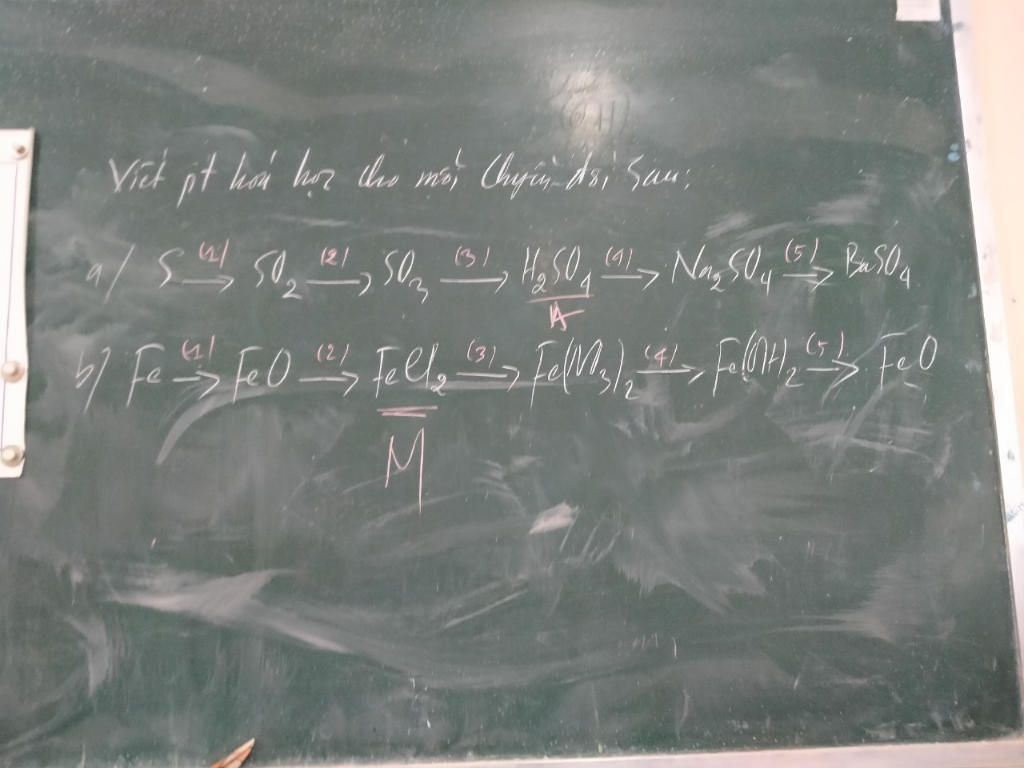 Viết pt hoá học cho mỗi chuyển đổi sau:
a/ S (1)→ SO₂ (2)→ SO₃ (3)→ H₂SO₄ (4)→ Na₂SO₄ (5)→ BaSO₄
A
b/ Fe (1)→ FeO (2)→ FeCl₂ (3)→ Fe(NO₃)₂ (4)→ Fe(OH)₂ (5)→ FeO
M